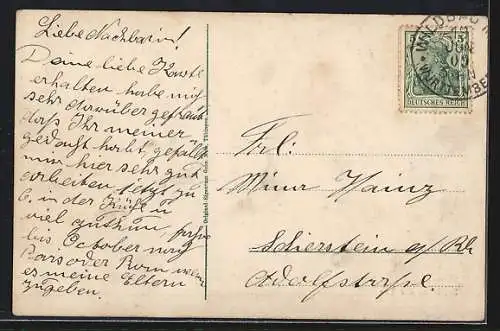 Liebe Nachbarin!
Deine liebe Karte
erhalten habe mich
sehr darüber gefreut
dass Ihr meiner
gedacht habt. gefällt
mir hier sehr gut
arbeiten jetzt zu
6. in der Küche u
viel guthun,
bis October nach
Paris oder Rom wenn
es meine Eltern
zugeben.
WILDBAD
09
WÜRTTEMBE
5
DEUTSCHES REICH
Frl:
Minna Hainz
Schierstein a/Rh
Adolfstrasse.